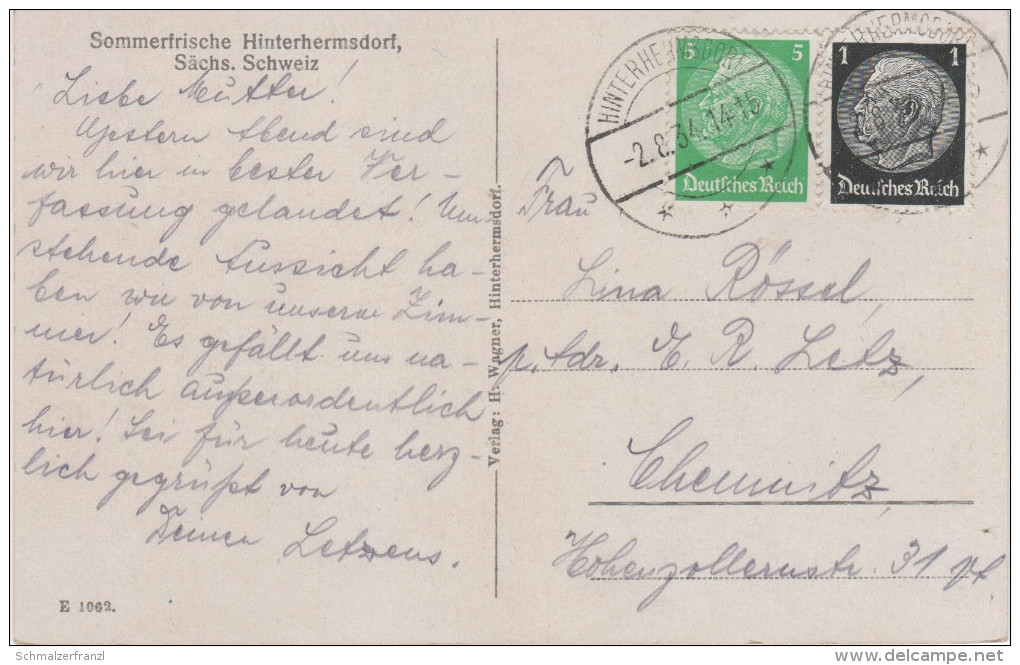 Sommerfrische Hinterhermsdorf,
Sächs. Schweiz
Liebe Mutter!
Gestern Abend sind
wir hier in bester Ver-
fassung gelandet! Um-
stehende Aussicht ha-
ben wir von unserem Zim-
mer! Es gefällt uns na-
türlich außerordentlich
hier! Sei für heute herz-
lich gegrüßt von
Deinen Letzens.
E 1062.
Verlag: H. Wagner, Hinterhermsdorf.
HINTERHERMSDORF
-2.8.34.14-15
5 5
Deutsches Reich
1
Deutsches Reich
Frau
Lina Rössel,
p. Adr. E. R. Letz,
Chemnitz,
Hohenzollernstr. 31 pt.
Schmalzerfranzl
delcampe.net